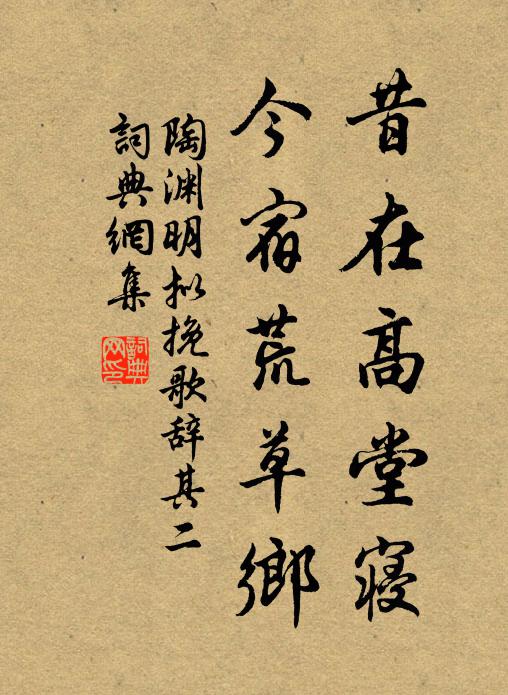 昔在高堂寝
今宿荒草鄉
陶渊明拟挽歌辞其二
詞典網集
詞典网印